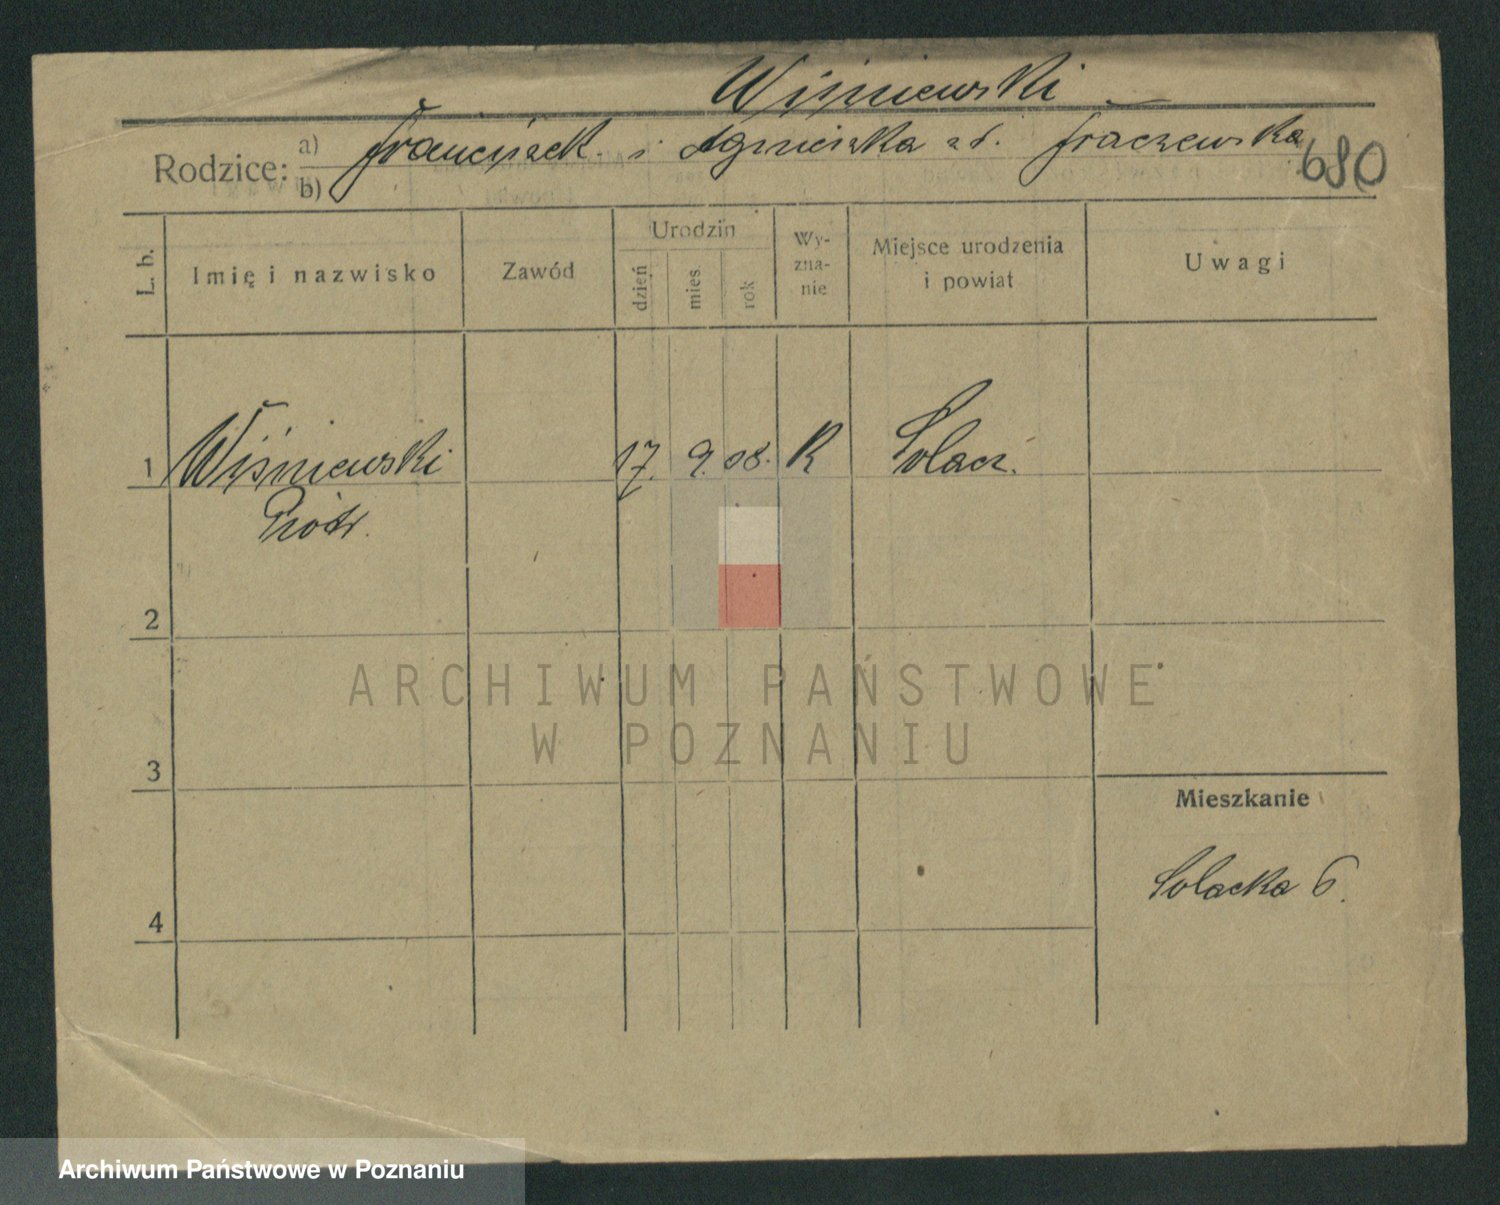 Wiśniewski
Rodzice: a) b) Franciszek i Agnieszka zd. Fraczewska
680
L. b. Imię i nazwisko Zawód Urodzin dzień mies. rok Wy-zna-nie Miejsce urodzenia i powiat Uwagi
1 Wiśniewski 17. 9. 08. R Solacz.
Piotr.
2
ARCHIWUM PAŃSTWOWE
W POZNANIU
3
Mieszkanie
Solacka 6.
4
Archiwum Państwowe w Poznaniu